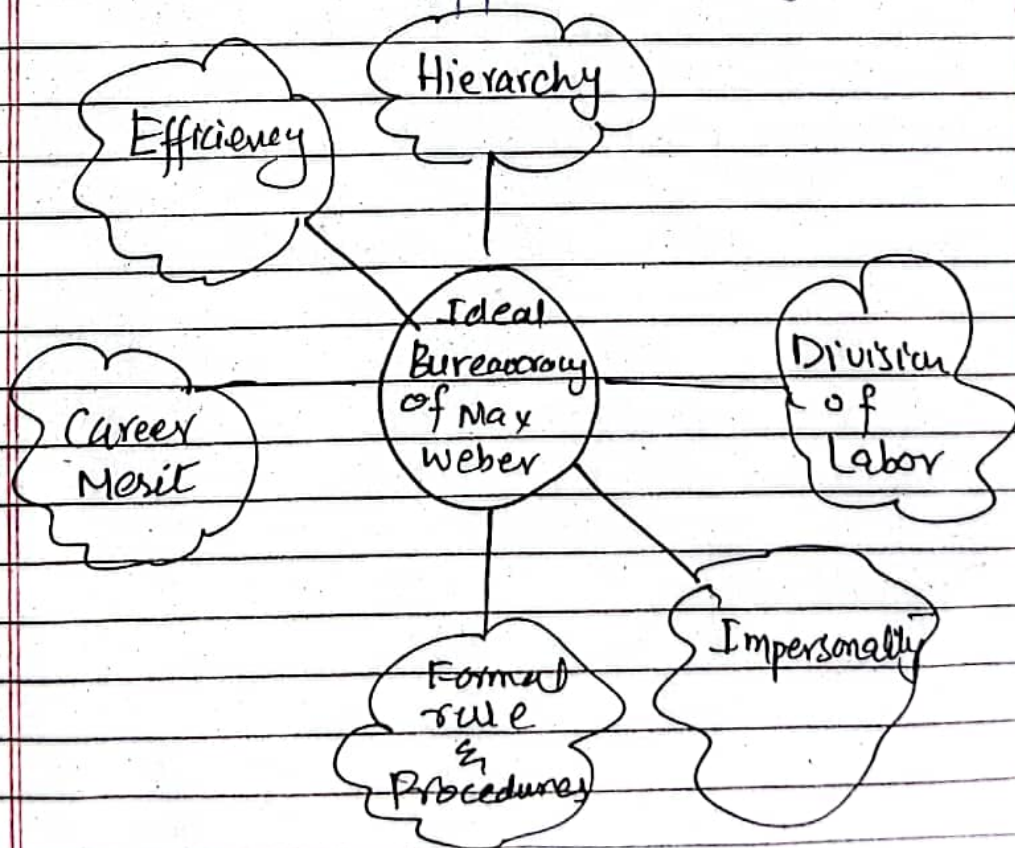 Hierarchy
Efficiency
Ideal
Bureaocracy
of Max
Weber
Division
of
Labor
Career
Mesit
Impersonally
Formal
rule
&
Procedures